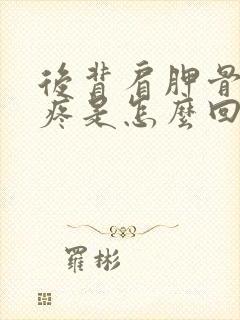 後背肩胛骨
疼是怎麼回
羅彬